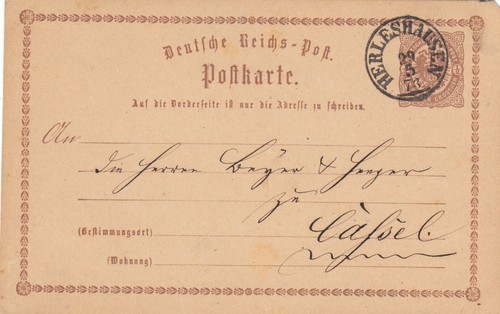 Deutsche Reichs-Post.
Postkarte.
HERLESHAUSEN
29
5
73
Auf die Vorderseite ist nur die Adresse zu schreiben.
An
die Herren Beyer &
zu
(Bestimmungsort) Cassel.
(Wohnung)